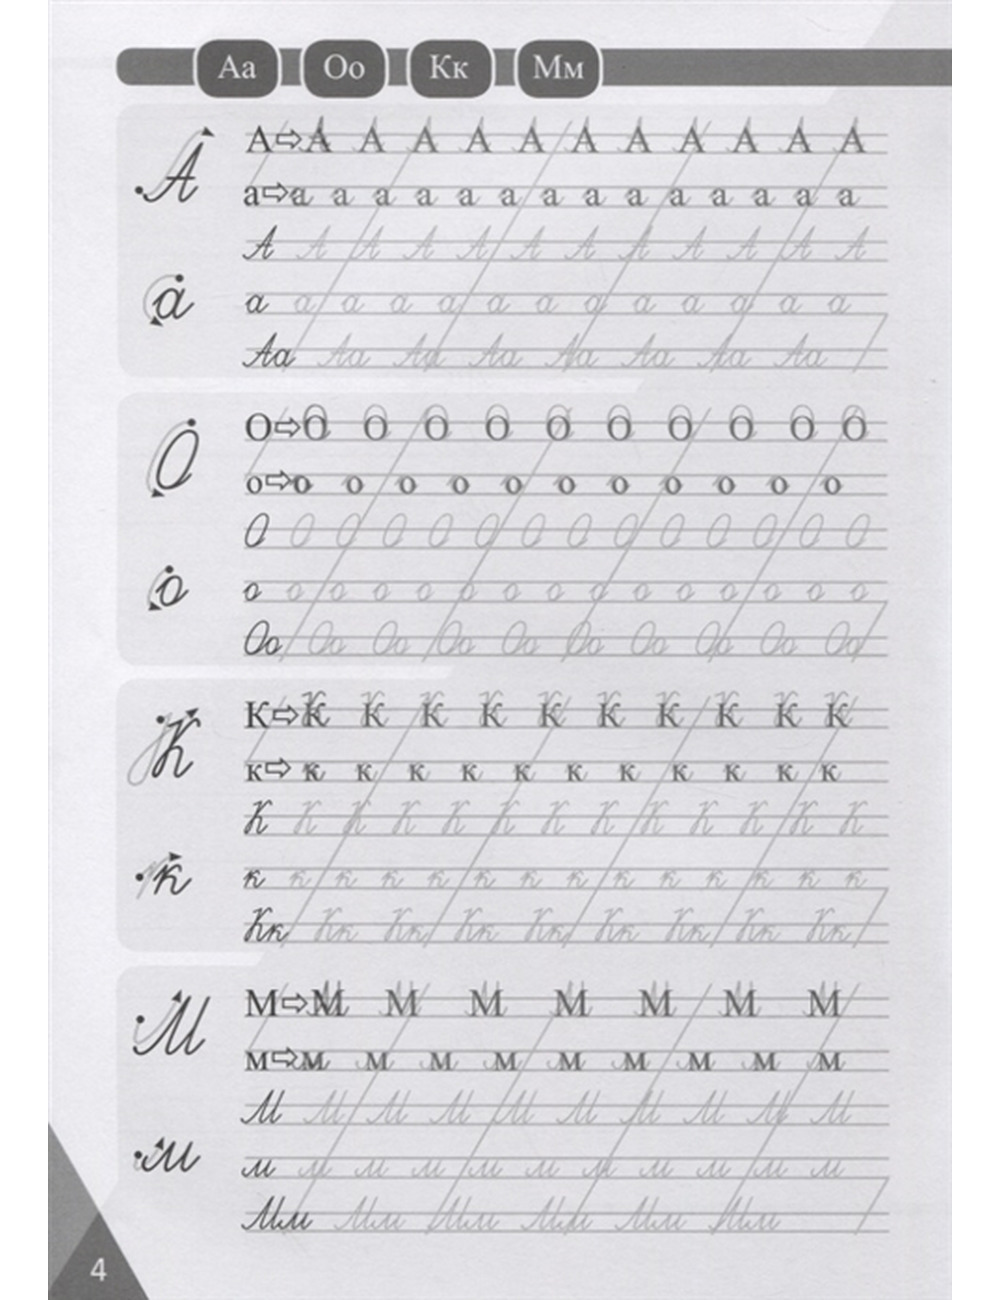 Аа Оо Кк Мм
А⇨А А А А А А А А А А А
а⇨а а а а а а а а а а а а а а
А А А А А А А А А А А А
а а а а а а а а а а а а а
Аа Аа Аа Аа Аа Аа Аа Аа
А
а
О⇨О О О О О О О О О О
о⇨о о о о о о о о о о о
О О О О О О О О О О О О О О
о о о о о о о о о о о о о о о
Оо Оо Оо Оо Оо Оо Оо Оо Оо Оо
О
о
К⇨К К К К К К К К К К
к⇨к к к к к к к к к к к
К К К К К К К К К К К К К
к к к к к к к к к к к к к к
Кк Кк Кк Кк Кк Кк Кк Кк Кк
К
к
М⇨М М М М М М М
м⇨м м м м м м м м м
М М М М М М М М М М
м м м м м м м м м м м
Мм Мм Мм Мм Мм Мм
М
м
4